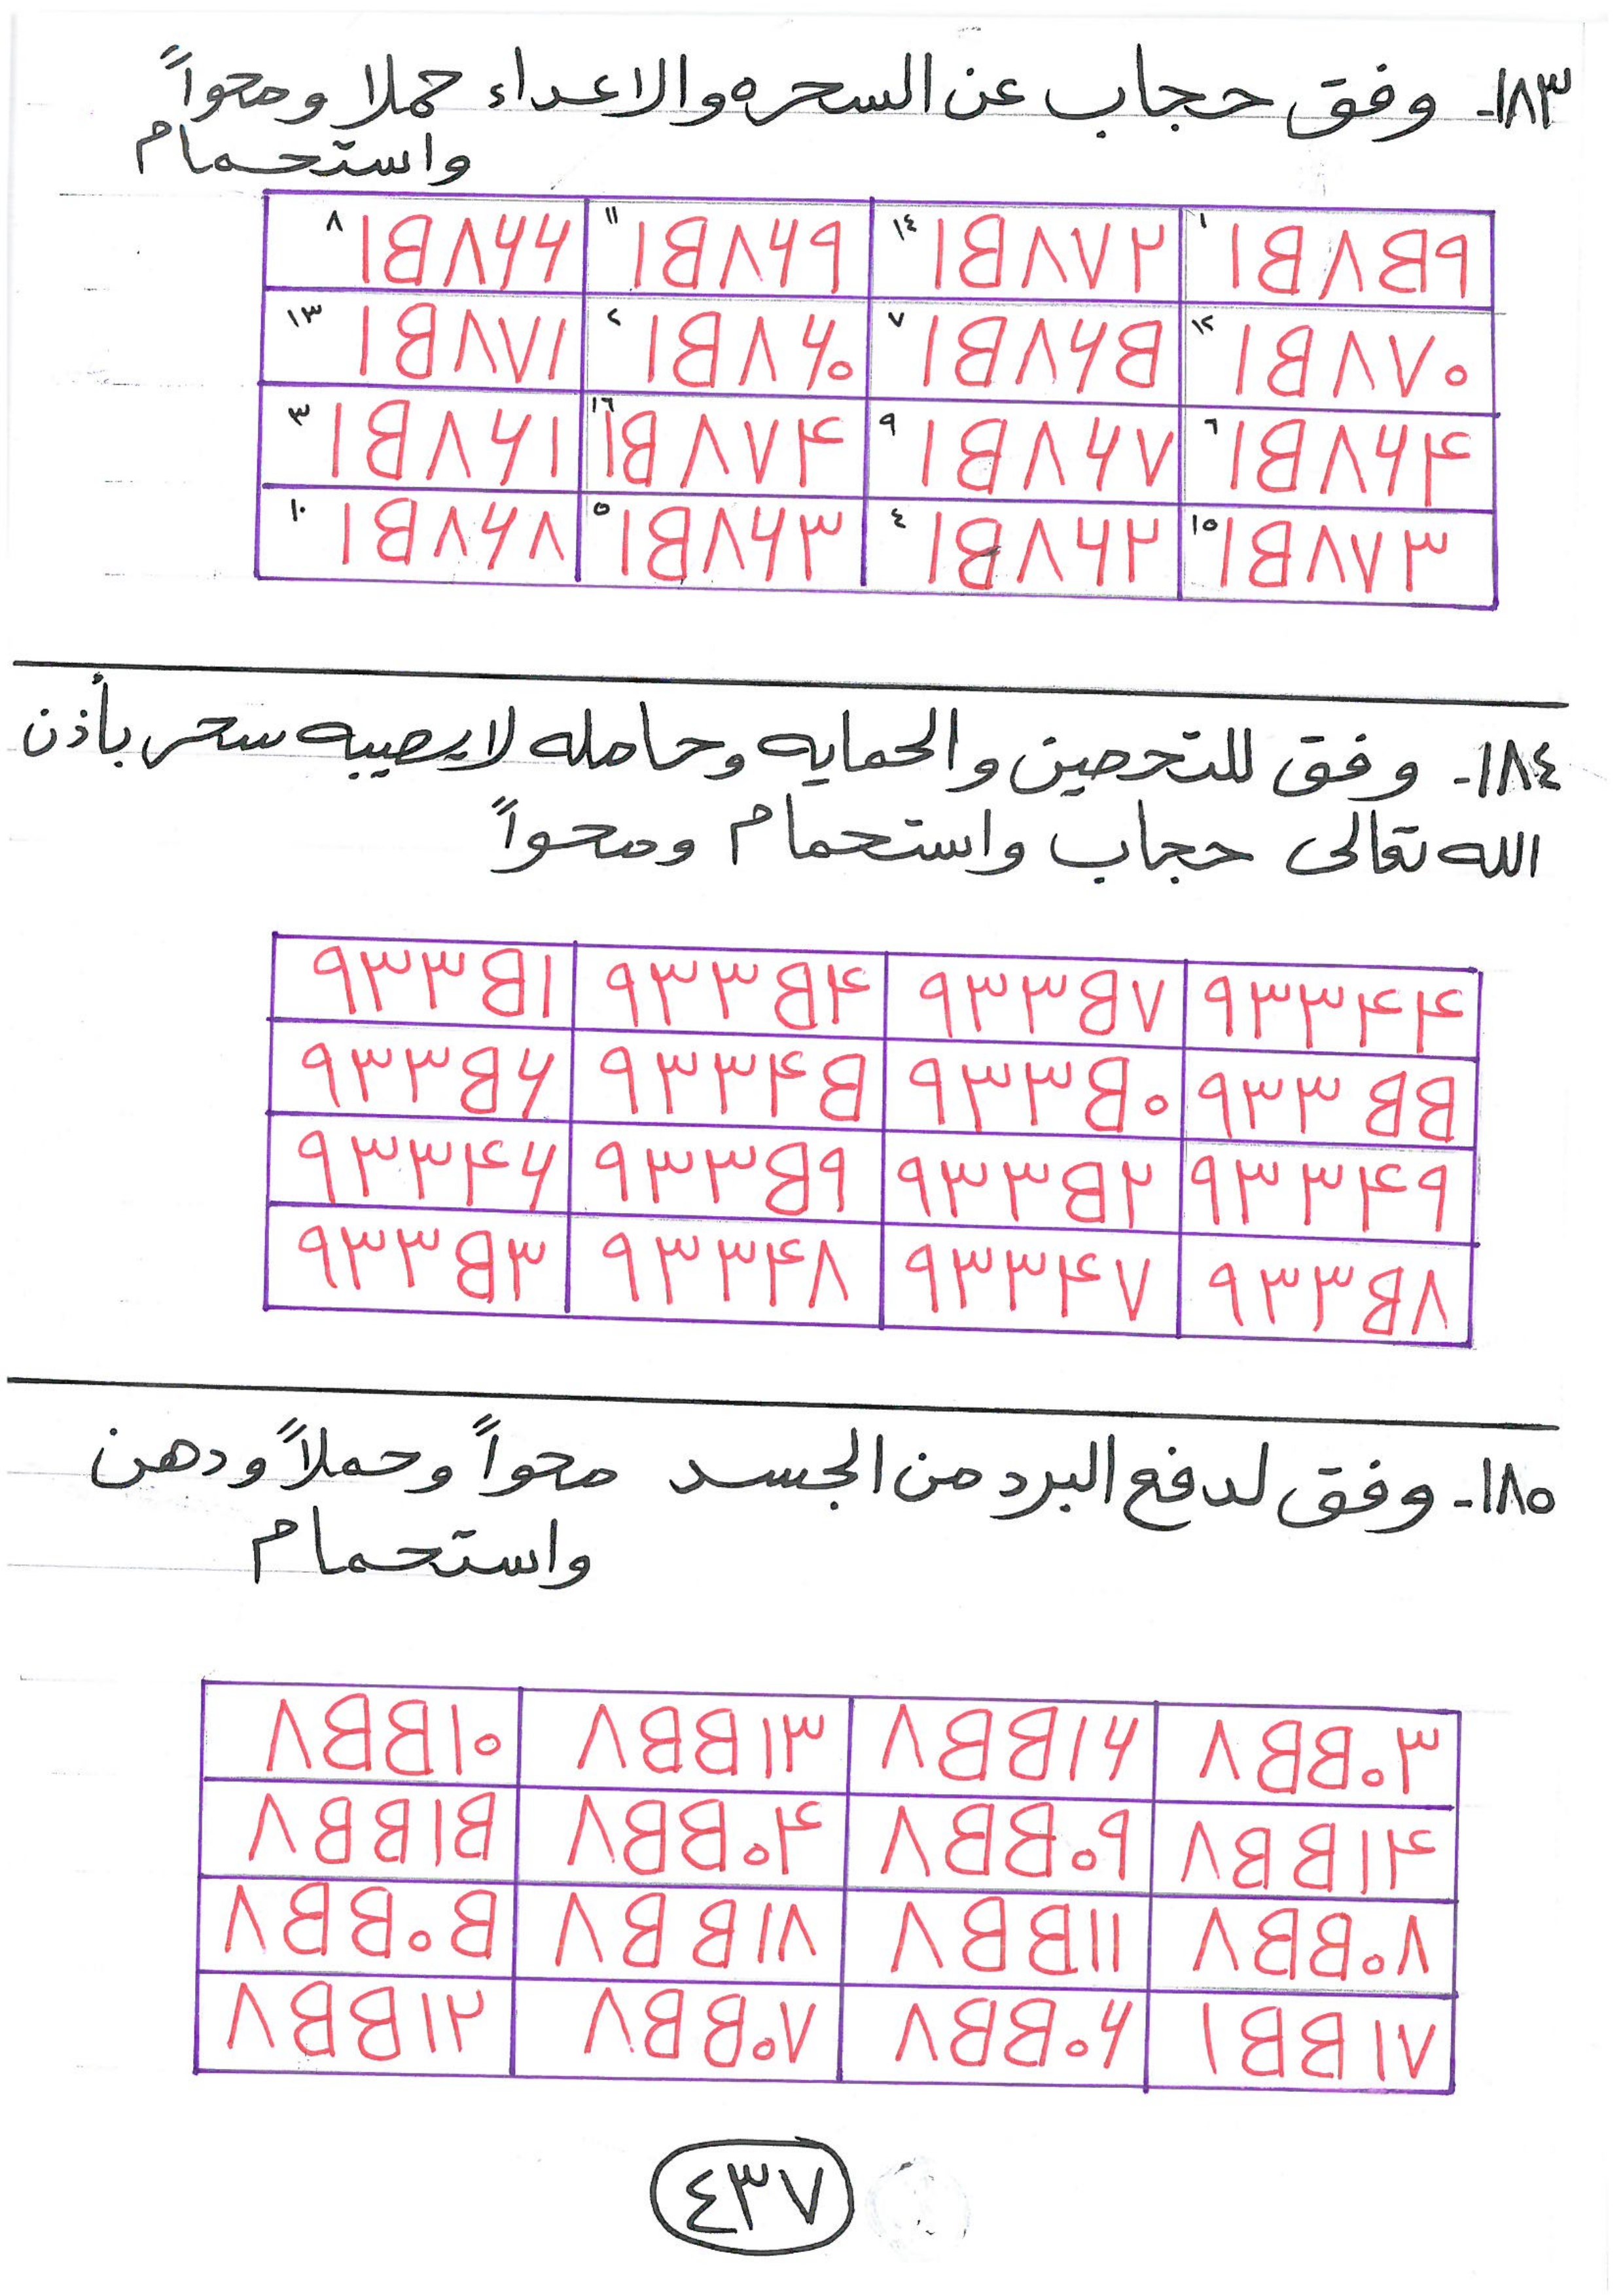 ١٨٣- وفق حجاب عن السحره والاعداء حملا ومحواً
واستحمام
١ ١٥٨٥٩ ١٤ ١٥٨٧٢ ١١ ١٥٨٦٩ ٨ ١٥٨٦٦
١٢ ١٥٨٧٠ ٧ ١٥٨٦٥ ٢ ١٥٨٦٠ ١٣ ١٥٨٧١
٦ ١٥٨٦٤ ٩ ١٥٨٦٧ ١٦ ١٥٨٧٤ ٣ ١٥٨٦١
١٥ ١٥٨٧٣ ٤ ١٥٨٦٢ ٥ ١٥٨٦٣ ١٠ ١٥٨٦٨
١٨٤- وفق للتحصين والحمايه وحامله لايصيبه سحر بأذن
الله تعالى حجاب واستحمام ومحواً
٩٣٣٤٤ ٩٣٣٥٧ ٩٣٣٥٤ ٩٣٣٥١
٩٣٣٥٥ ٩٣٣٥٠ ٩٣٣٤٥ ٩٣٣٥٦
٩٣٣٤٩ ٩٣٣٥٢ ٩٣٣٥٩ ٩٣٣٤٦
٩٣٣٥٨ ٩٣٣٤٧ ٩٣٣٤٨ ٩٣٣٥٣
١٨٥- وفق لدفع البرد من الجسد محواً وحملاً ودهن
واستحمام
٨٥٥٠٣ ٨٥٥١٦ ٨٥٥١٣ ٨٥٥١٠
٨٥٥١٤ ٨٥٥٠٩ ٨٥٥٠٤ ٨٥٥١٥
٨٥٥٠٨ ٨٥٥١١ ٨٥٥١٨ ٨٥٥٠٥
١٥٥١٧ ٨٥٥٠٦ ٨٥٥٠٧ ٨٥٥١٢
٤٣٧